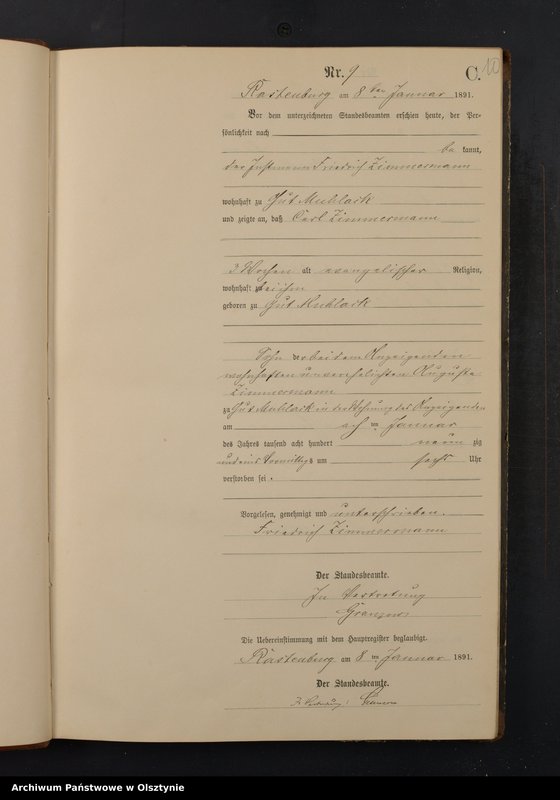 Nr. 9
C.
10
Rastenburg am 8 ten Januar 1891.
Vor dem unterzeichneten Standesbeamten erschien heute, der Per-
sönlichkeit nach
be kannt,
der Instmann Friedrich Zimmermann
wohnhaft zu Gut Muhlack
und zeigte an, daß Carl Zimmermann
3 Wochen alt evangelischer Religion,
wohnhaft zu bei ihm
geboren zu Gut Muhlack
Sohn der bei dem Anzeigenden
wohnhaften unverehelichten Auguste
Zimmermann
zu Gut Muhlack in der Wohnung des Anzeigenden
am ten Januar
des Jahres tausend acht hundert neun zig
und eins Vormittags um sechs Uhr
verstorben sei.
Vorgelesen, genehmigt und unterschrieben.
Friedrich Zimmermann
Der Standesbeamte.
In Vertretung
Die Uebereinstimmung mit dem Hauptregister beglaubigt.
Rastenburg am 8 ten Januar 1891.
Der Standesbeamte.
In Vertretung:
Archiwum Państwowe w Olsztynie